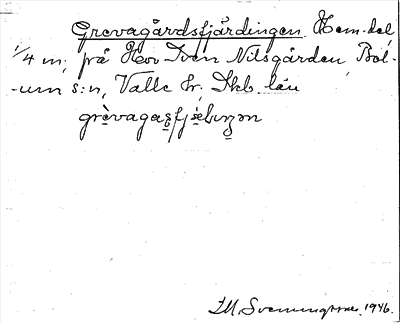 Grevagårdsfjärdingen Hem.del
1/4 m; från Hov Sven Nilsgården, Bol-
-um s:n, Valle hr, Skb. län
grèvagasfjæ̀rɩŋən
J.M. Svenningsson 1946.